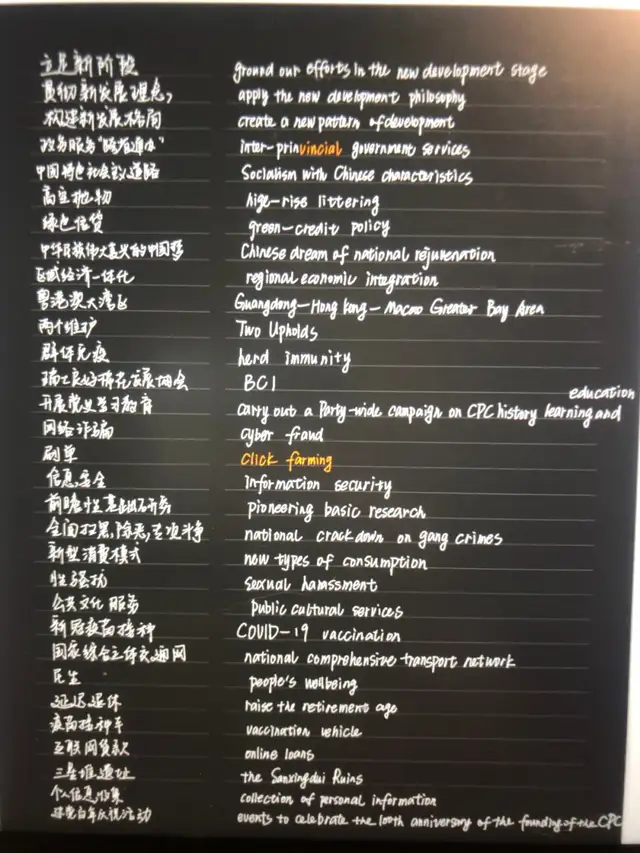 立足新阶段 ground our efforts in the new development stage
贯彻新发展理念, apply the new development philosophy
构建新发展格局 create a new pattern of development
政务服务"跨省通办" inter-prinvincial government services
中国特色社会主义道路 Socialism with Chinese characteristics
高空抛物 hige-rise littering
绿色信贷 green-credit policy
中华民族伟大复兴的中国梦 Chinese dream of national rejuvenation
区域经济一体化 regional economic integration
粤港澳大湾区 Guangdong-Hong kong-Macao Greater Bay Area
两个维护 Two Upholds
群体免疫 herd immunity
瑞士良好棉花发展协会 BCI
开展党史学习教育 carry out a Party-wide campaign on CPC history learning and education
网络诈骗 cyber fraud
刷单 click farming
信息安全 information security
前瞻性基础研究 pioneering basic research
全国扫黑,除恶,专项斗争 national crackdown on gang crimes
新型消费模式 new types of consumption
性骚扰 sexual harassment
公共文化服务 public cultural services
新冠疫苗接种 COVID-19 vaccination
国家综合立体交通网 national comprehensive transport network
民生 people's wellbeing
延迟退休 raise the retirement age
疫苗接种车 vaccination vehicle
互联网贷款 online loans
三星堆遗址 the Sanxingdui Ruins
个人信息收集 collection of personal information
建党百年庆祝活动 events to celebrate the 100th anniversary of the founding of the CPC